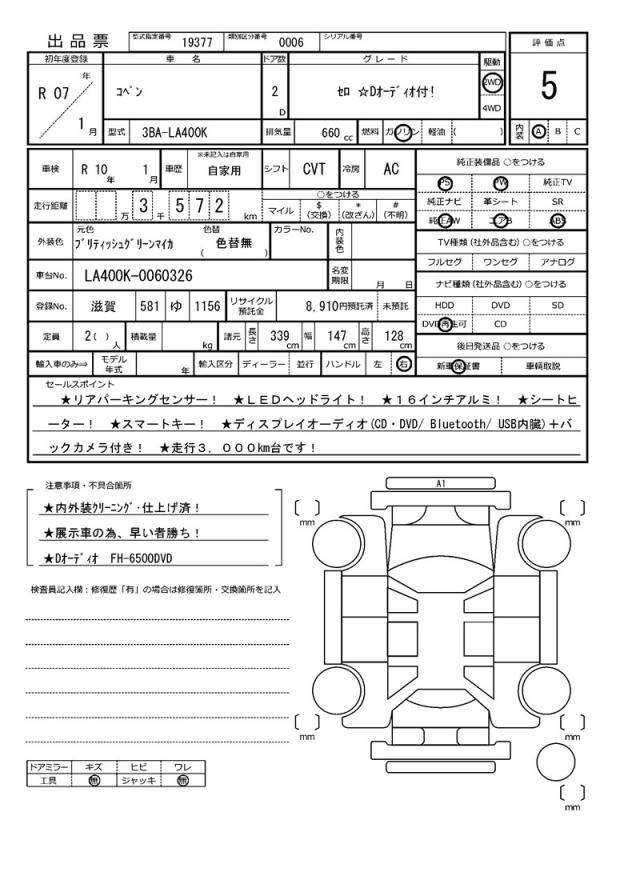 出品票 型式指定番号 19377 類別区分番号 0006 シリアル番号
評価点
5
内装 A B C
初年度登録 車名 ドア数 グレード 駆動
R 07 年 1 月
コペン 2 D セロ ☆Dオーディオ付！ 2WD
4WD
型式 3BA-LA400K 排気量 660 cc 燃料 ガソリン 軽油 ( )
車検 R 10 年 1 月 車歴 ※未記入は自家用 自家用 シフト CVT 冷房 AC
走行距離 万 3 千 5 7 2 km
○をつける
マイル $ (交換) * (改ざん) # (不明)
外装色 元色 ブリティッシュグリーンマイカ 色替 ( 色替無 ) カラーNo. 内装色
車台No. LA400K-0060326 名変期限 月 日
登録No. 滋賀 581 ゆ 1156 リサイクル預託金 8,910円預託済 未預託
定員 2 ( ) 人 積載量 kg 諸元 長さ 339 cm 幅 147 cm 高さ 128 cm
輸入車のみ⇒ モデル年式 年 輸入区分 ディーラー 並行 ハンドル 左 右
純正装備品 ○をつける
PS PW 純正TV
純正ナビ 革シート SR
純正AW エアB ABS
TV種類 (社外品含む) ○をつける
フルセグ ワンセグ アナログ
ナビ種類 (社外品含む) ○をつける
HDD DVD SD
DVD再生可 CD
後日発送品 ○をつける
新車保証書 車輌取説
セールスポイント
★リアパーキングセンサー！ ★ＬＥＤヘッドライト！ ★１６インチアルミ！ ★シートヒ
ーター！ ★スマートキー！ ★ディスプレイオーディオ(CD・DVD/ Bluetooth/ USB内臓)＋バ
ックカメラ付き！ ★走行３，０００km台です！
注意事項・不具合箇所
★内外装クリーニング・仕上げ済！
★展示車の為、早い者勝ち！
★Dオーディオ FH-6500DVD
検査員記入欄：修復歴「有」の場合は修復箇所・交換箇所を記入
ドアミラー キズ ヒビ ワレ
工具 無 ジャッキ 無
A1
mm mm
mm mm
mm